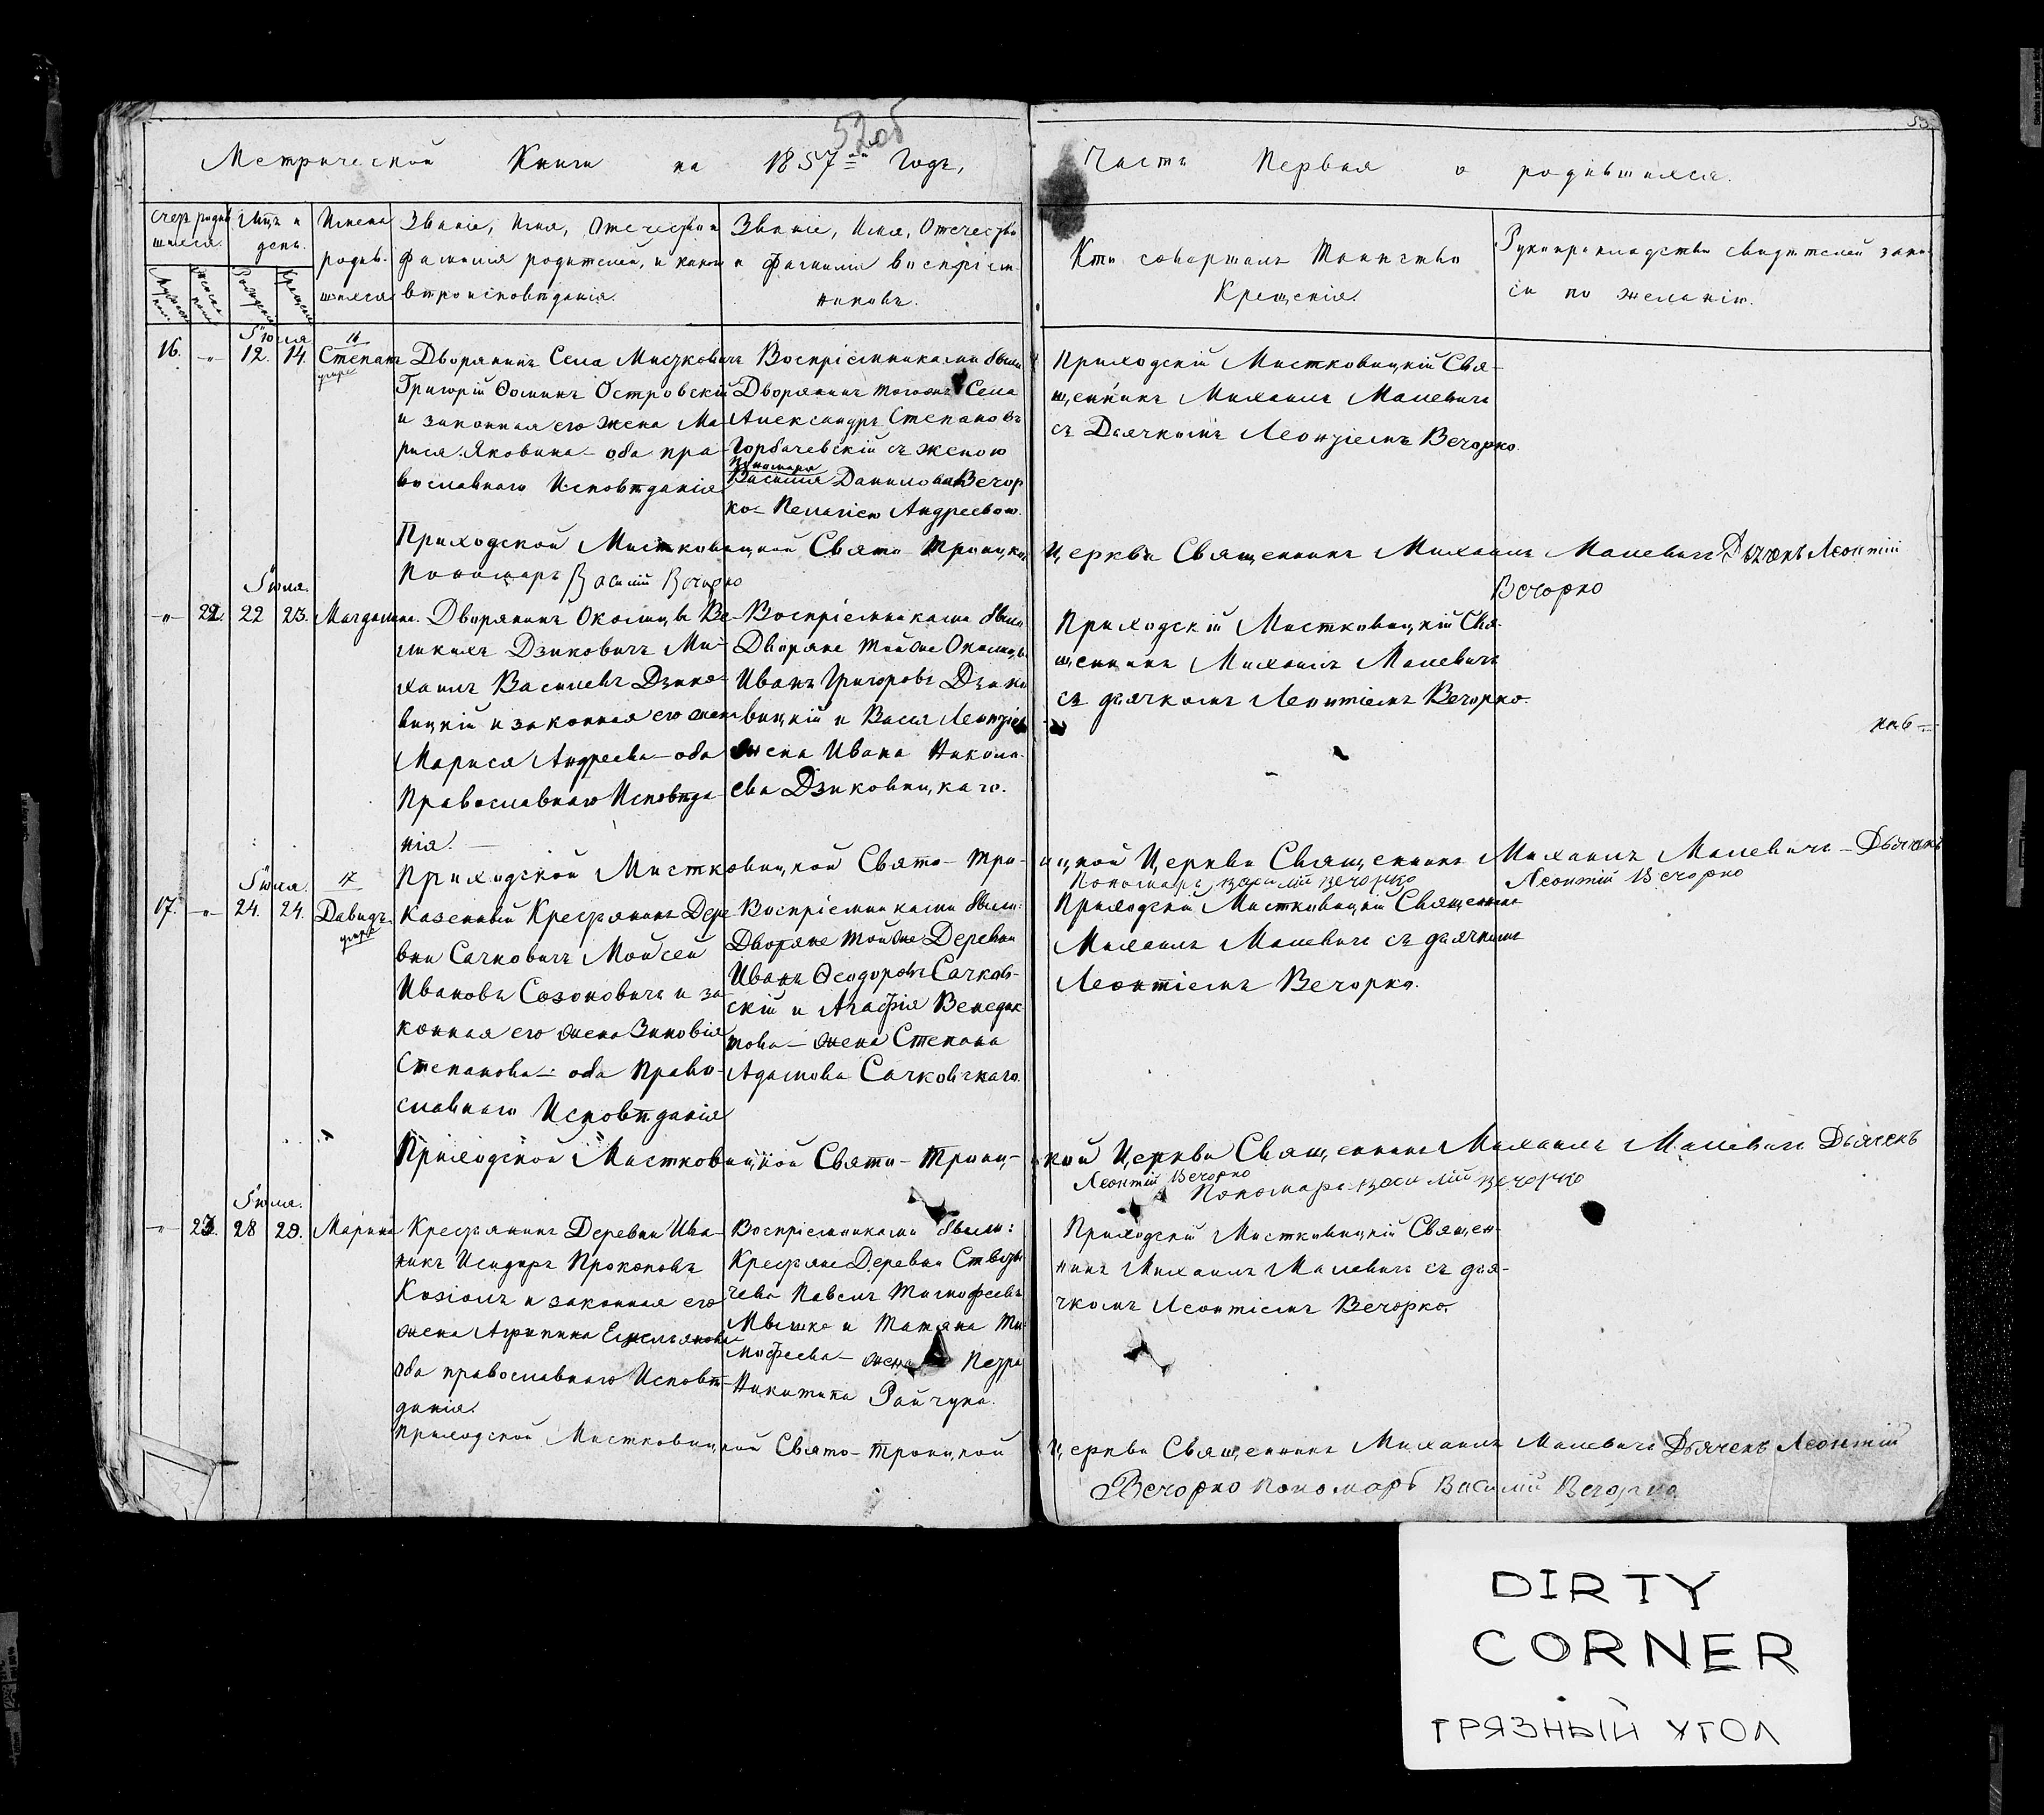 52об
53
Метрической Книги на 1857ой Годъ,
Часть Первая о родившихся.
Счетъ родив
шихся.
Мужеска
пола
Женска
пола
Мѣц. и
день.
Рожденія
Крещенія
Имена
родив-
шихся
Званіе, Имя, Отечество и
фамилія родителей, и какого
вѣроисповѣданія.
Званіе, Имя, Отечество
и фамилія воспріем-
никовъ.
Кто совершалъ Таинство
Крещенія.
Рукоприкладство свидѣтелей запи-
си по желанію.
Іюля
16. -"- 12. 14.
16
Степанъ
умре
Дворянинъ Села Мисткович
Григорій Ѳоминъ Островскій
и законная его жена Ма-
рися Яковина - оба пра-
вославнаго Исповѣданія
Воспріемниками были
Дворянинъ тогоже Села
Александръ Степановъ
Горбачевскій съ женою
Пономаря
Василія Данилова Вечор
ко - Пелагіею Андреевою.
Приходскій Мистковицкій Свя-
щенникъ Михаилъ Малевичъ
съ Дьячкомъ Леонтіемъ Вечорко.
Приходской Мистковицкой Свято Троицкой Церкви Священникъ Михаилъ Малевичъ Дьячекъ Леонтій
Вечорко
Пономарь Василій Вечорко
Іюля.
-"- 22. 22 23. Магдалина.
Дворянинъ Околицы Ве-
ликихъ Дзиковичъ Ми-
хаилъ Василевъ Дзико-
вицкій и законная его жена
Марися Андреева - оба
Православнаго Исповѣда
нія. -
Воспріемниками были
Дворяне тойже Околицы
Иванъ Григоровъ Дзико
вицкій и Васса Леонтіева
жена Ивана Никола-
ева Дзиковицкаго.
Приходскій Мистковицкій Свя-
щенникъ Михаилъ Малевичъ
съ дьячкомъ Леонтіемъ Вечорко.
Приходской Мистковицкой Свято - Троицкой Церкви Священникъ Михаилъ Малевичъ - Дьячекъ
Леонтій Вечорко
Пономарь Василій Вечорко
Іюля.
17. -"- 24. 24.
17
Давидъ
умре
Казенный Крестьянинъ Дере
вни Сачковичъ Мойсей
Ивановъ Созоновичъ и за-
конная его жена Зиновія
Степанова - оба Право-
славнаго Исповѣданія
Воспріемниками были:
Дворяне тойже Деревни
Иванъ Ѳеодоровъ Сачков-
скій и Агафія Венедик
това - жена Степана
Адамова Сачковскаго.
Приходскій Мистковицкій Священникъ
Михаилъ Малевичъ съ дьячкомъ
Леонтіемъ Вечорко.
Приходской Мистковицкой Свято - Троицкой Церкви Священникъ Михаилъ Малевичъ Дьячекъ
Леонтій Вечорко
Пономарь Василій Вечорко
Іюля.
-"- 23. 28 29. Марина
Крестьянинъ Деревни Ива-
никъ Исидоръ Прокоповъ
Козіолъ и законная его
жена Агрипина Емельянова
оба православнаго Исповѣ-
данія.
Воспріемниками были:
Крестьяне Деревни
чева Павелъ Тимофеевъ
Мышко и Татяна Ти-
мофеева - жена Петра
Никитина Райчука.
Приходскій Мистковицкій Священ-
никъ Михаилъ Малевичъ съ дья-
чкомъ Леонтіемъ Вечорко.
Приходской Мистковицкой Свято - Троицкой Церкви Священникъ Михаилъ Малевичъ Дьячекъ Леонтій
Вечорко Пономарь Василій Вечорко
DIRTY
CORNER
ГРЯЗНЫЙ УГОЛ